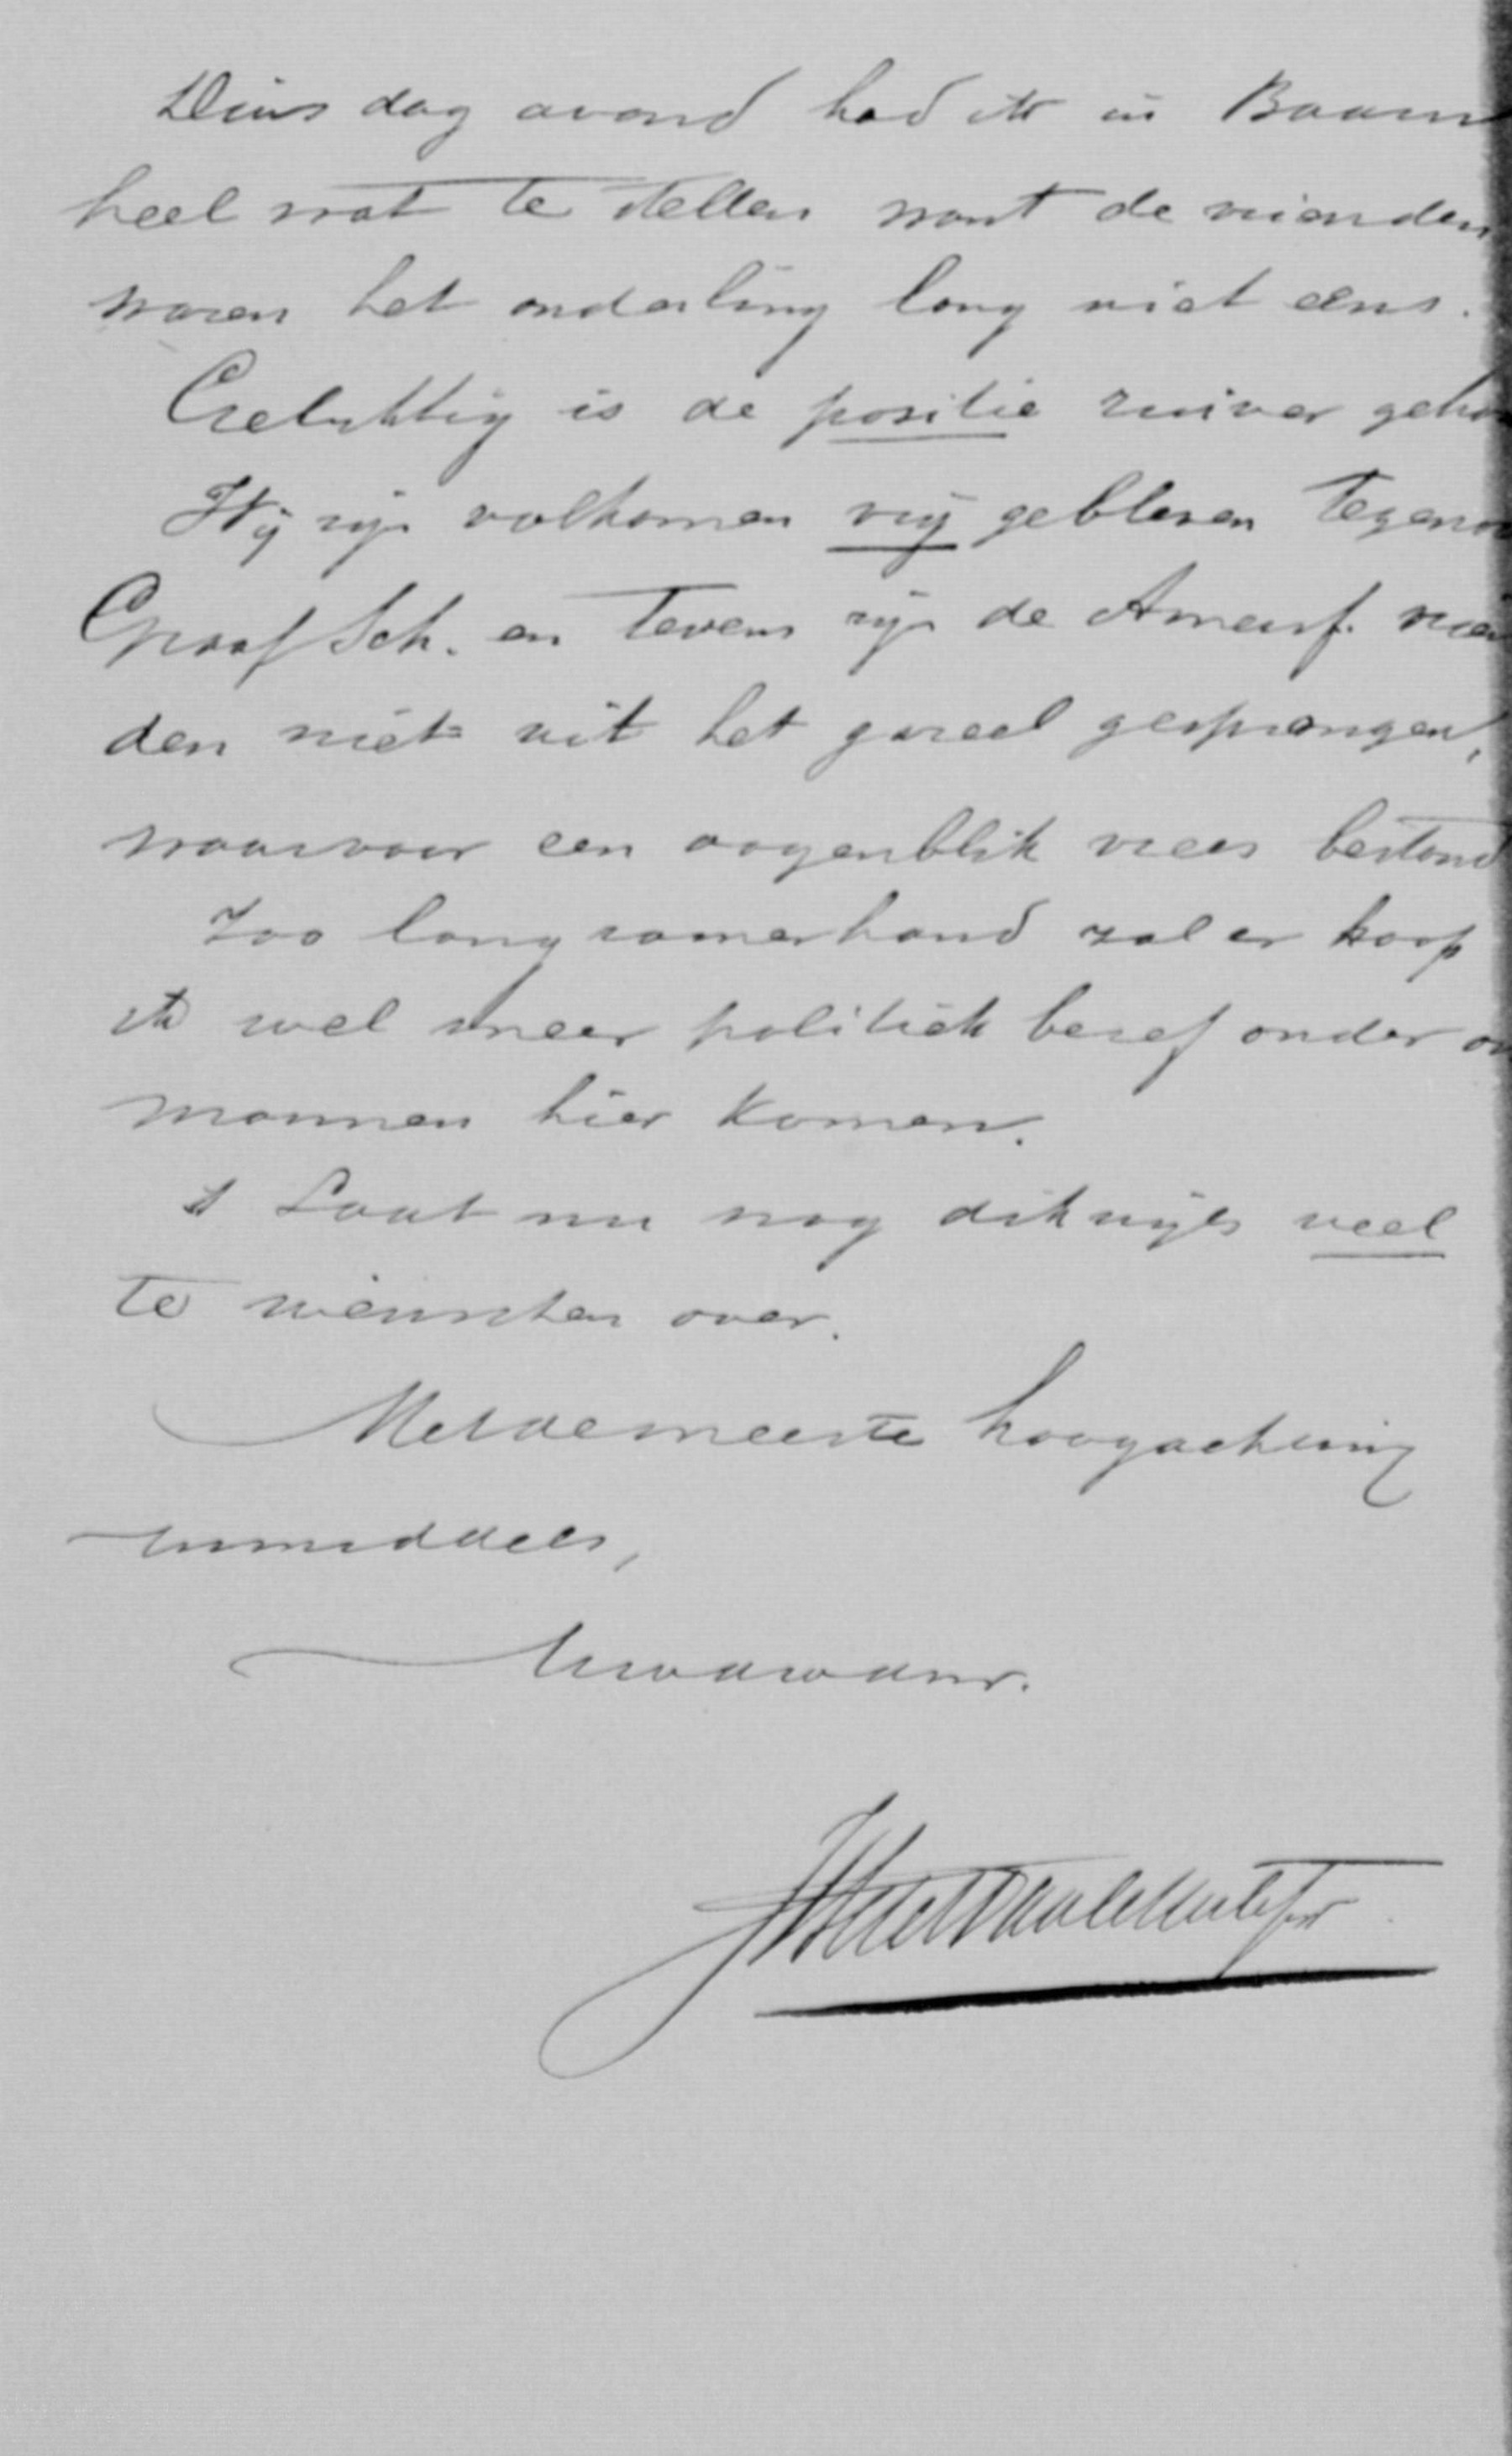 Dinsdag avond had ik in Baarn
heel wat te stellen want de vrienden
waren het onderling lang niet eens.
Gelukkig is de positie zuiver geho
Wij zijn volkomen vrij gebleven tegeno
Graaf Sch. en tevens zijn de Amersf. vrien
den niet uit het gareel gesprongen,
waarvoor een oogenblik vrees bestond
Zoo langzamerhand zal er hoop
ik wel meer politiek besef onder on
mannen hier komen.
't Laat nu nog dikwijls veel
te wenschen over.
Met de meeste hoogachting
inmiddels,
Uw dw dnr.